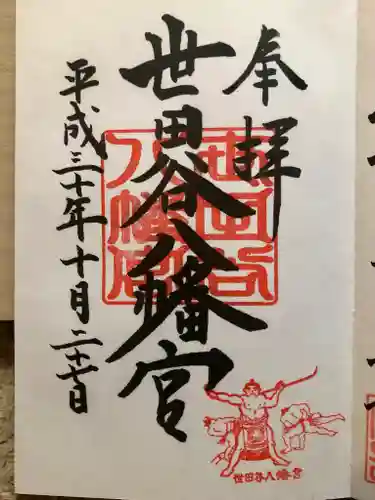 奉拝
世田谷八幡宮
世田谷
八幡宮
平成三十年十月二十七日
世田谷八幡宮